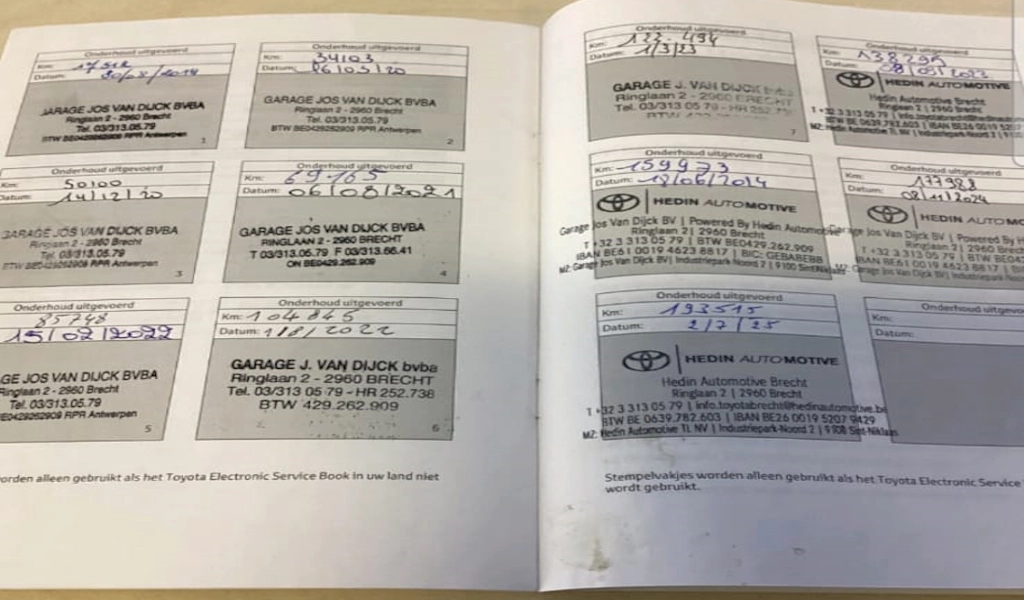 Onderhoud uitgevoerd
Km: 17512
Datum: 30/08/2019
GARAGE JOS VAN DIJCK BVBA
Ringlaan 2 - 2960 Brecht
Tel. 03/313.05.79
BTW BE0429262909 RPR Antwerpen
1
Onderhoud uitgevoerd
Km: 34103
Datum: 06/05/20
GARAGE JOS VAN DIJCK BVBA
Ringlaan 2 - 2960 Brecht
Tel. 03/313.05.79
BTW BE0429262909 RPR Antwerpen
2
Onderhoud uitgevoerd
Km: 50100
Datum: 14/12/20
GARAGE JOS VAN DIJCK BVBA
Ringlaan 2 - 2960 Brecht
Tel. 03/313.05.79
BTW BE0429262909 RPR Antwerpen
3
Onderhoud uitgevoerd
Km: 69165
Datum: 06/08/2021
GARAGE JOS VAN DIJCK BVBA
RINGLAAN 2 - 2960 BRECHT
T 03/313.05.79 F 03/313.66.41
ON BE0429.262.909
4
Onderhoud uitgevoerd
85748
15/02/2022
GE JOS VAN DIJCK BVBA
Ringlaan 2 - 2960 Brecht
Tel. 03/313.05.79
BE0429262909 RPR Antwerpen
5
Onderhoud uitgevoerd
Km: 104845
Datum: 1/8/2022
GARAGE J. VAN DIJCK bvba
Ringlaan 2 - 2960 BRECHT
Tel. 03/313 05 79 - HR 252.738
BTW 429.262.909
6
orden alleen gebruikt als het Toyota Electronic Service Book in uw land niet
Onderhoud uitgevoerd
Km: 122.494
Datum: 1/3/23
GARAGE J. VAN DIJCK bvba
Ringlaan 2 - 2960 BRECHT
Tel. 03/313 05 79 - HR 252
7
Onderhoud uitgevoerd
Km: 138295
Datum:
HEDIN AUTOMOTIVE
Hedin Automotive Brecht
Ringlaan 2 | 2960 Brecht
T +32 3 313 05 79 | info.toyotabrecht@hedinautom
BTW BE 0639.782.603 | IBAN BE26 0019 5207
MZ: Hedin Automotive TL NV | Industriepark-Noord 2 | 9
Onderhoud uitgevoerd
Km: 159973
Datum: 18/06/2014
HEDIN AUTOMOTIVE
Garage Jos Van Dijck BV | Powered By Hedin Automo
Ringlaan 2 | 2960 Brecht
T +32 3 313 05 79 | BTW BE0429.262.909
IBAN BE61 0019 4623 8817 | BIC: GEBABEBB
MZ: Garage Jos Van Dijck BV | Industriepark Noord 2 | 9100 SintNiklaas
Onderhoud uitgevoerd
Km: 177988
Datum: 08/11/2024
HEDIN AUTOMO
Garage Jos Van Dijck BV | Powered By H
Ringlaan 2 | 2960 B
T +32 3 313 05 79 | BTW BE042
IBAN BE61 0019 4623 8817 |
MZ: Garage Jos Van Dijck BV | Industriepark No
Onderhoud uitgevoerd
Km: 193515
Datum: 2/7/25
HEDIN AUTOMOTIVE
Hedin Automotive Brecht
Ringlaan 2 | 2960 Brecht
T +32 3 313 05 79 | info.toyotabrecht@hedinautomotive.be
BTW BE 0639.782.603 | IBAN BE26 0019 5207 9429
MZ: Hedin Automotive TL NV | Industriepark-Noord 2 | 9100 Sint-Niklaas
Onderhoud uitgevo
Km:
Datum:
Stempelvakjes worden alleen gebruikt als het Toyota Electronic Service
wordt gebruikt.